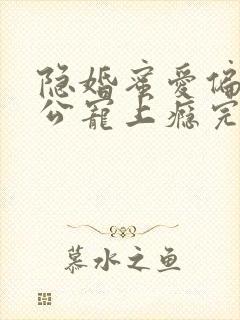 隐婚蜜爱偏
公宠上瘾完
慕水之鱼